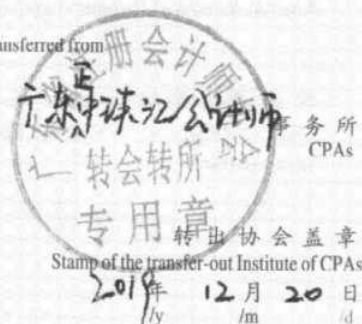 ansferred from
广东正中珠江会计师
事务所
CPAs
广东省注册会计师协会
转会转所
专用章
转出协会盖章
Stamp of the transfer-out Institute of CPAs
2019年 12月 20日
/y /m /d